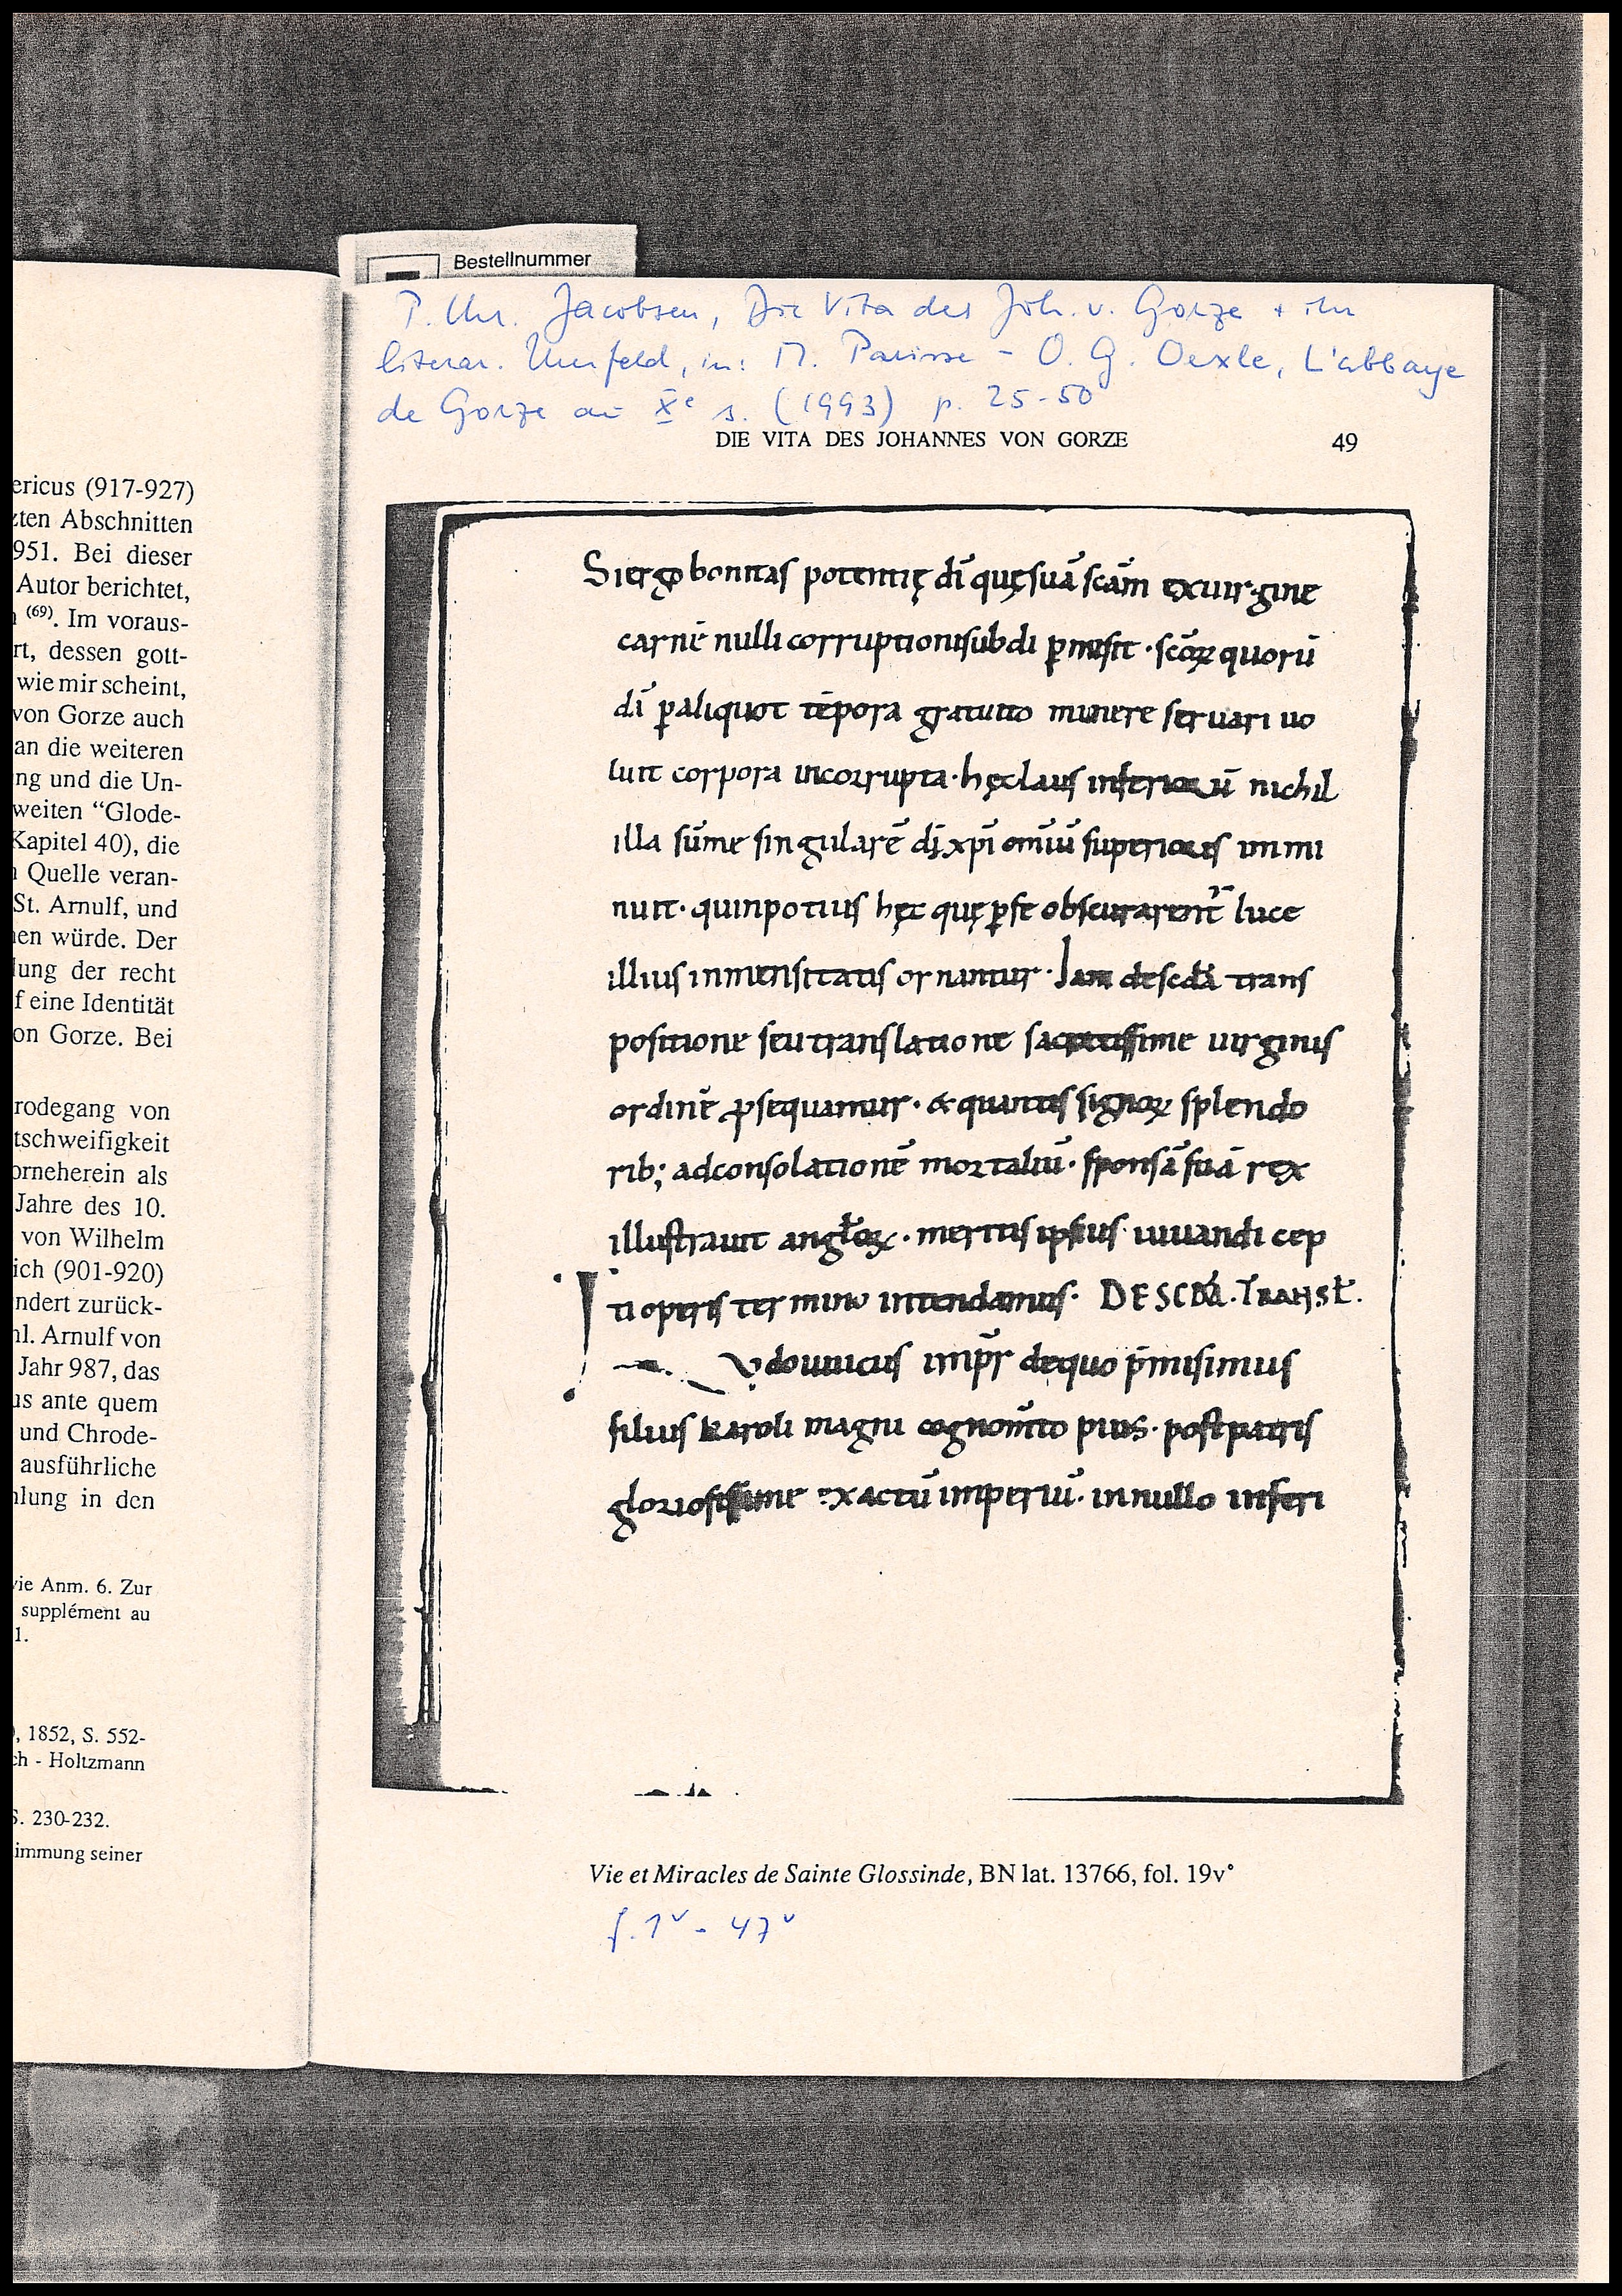 Bestellnummer
P. Chr. Jacobsen, Die Vita des Joh. v. Gorze + ihr
literar. Umfeld, in: M. Parisse - O. G. Oexle, L'abbaye
de Gorze au Xe s. (1993) p. 25-50
DIE VITA DES JOHANNES VON GORZE 49
ericus (917-927)
zten Abschnitten
951. Bei dieser
Autor berichtet,
(69). Im voraus-
rt, dessen gott-
wie mir scheint,
von Gorze auch
an die weiteren
ng und die Un-
weiten “Glode-
Kapitel 40), die
Quelle veran-
St. Arnulf, und
nen würde. Der
lung der recht
f eine Identität
on Gorze. Bei
rodegang von
tschweifigkeit
orneherein als
Jahre des 10.
von Wilhelm
ich (901-920)
ndert zurück-
nl. Arnulf von
Jahr 987, das
us ante quem
und Chrode-
ausführliche
hlung in den
vie Anm. 6. Zur
supplément au
1.
), 1852, S. 552-
ch - Holtzmann
S. 230-232.
immung seiner
Si ergo bonitas potentię dī quę suā scām ex uirgine
carnē nulli corruptioni subdi ꝑmisit · scōꝝ quorū
dā ꝑ aliquot tēpora gratuito munere seruari uo
luit corpora incorrupta · hęc laus inferiorū nichil
illa sūme singularē dī xpī omiū superioris immi
nuit · quin potius hęc quę ꝑ se obscurarent̄ luce
illius inmensitatis ornantur · Iam de scdā trans
positione seu translatione sacratissime uirginis
ordinē ꝓsequamur · & quantis signoꝝ splendo
rib; ad consolationē mortaliū · sponsā suā rex
illustrauit angłoꝝ · meritis ipsius iuuandi cep
ti operis termino intendamus · DE SCDA · TRANSŁ .
udouuicus impr̄ de quo p̄misimus
filius karoli magni cognom̄to pius · post patris
gloriosissime exactū imperiū · in nullo inferi
Vie et Miracles de Sainte Glossinde, BN lat. 13766, fol. 19v°
f. 1v - 47v